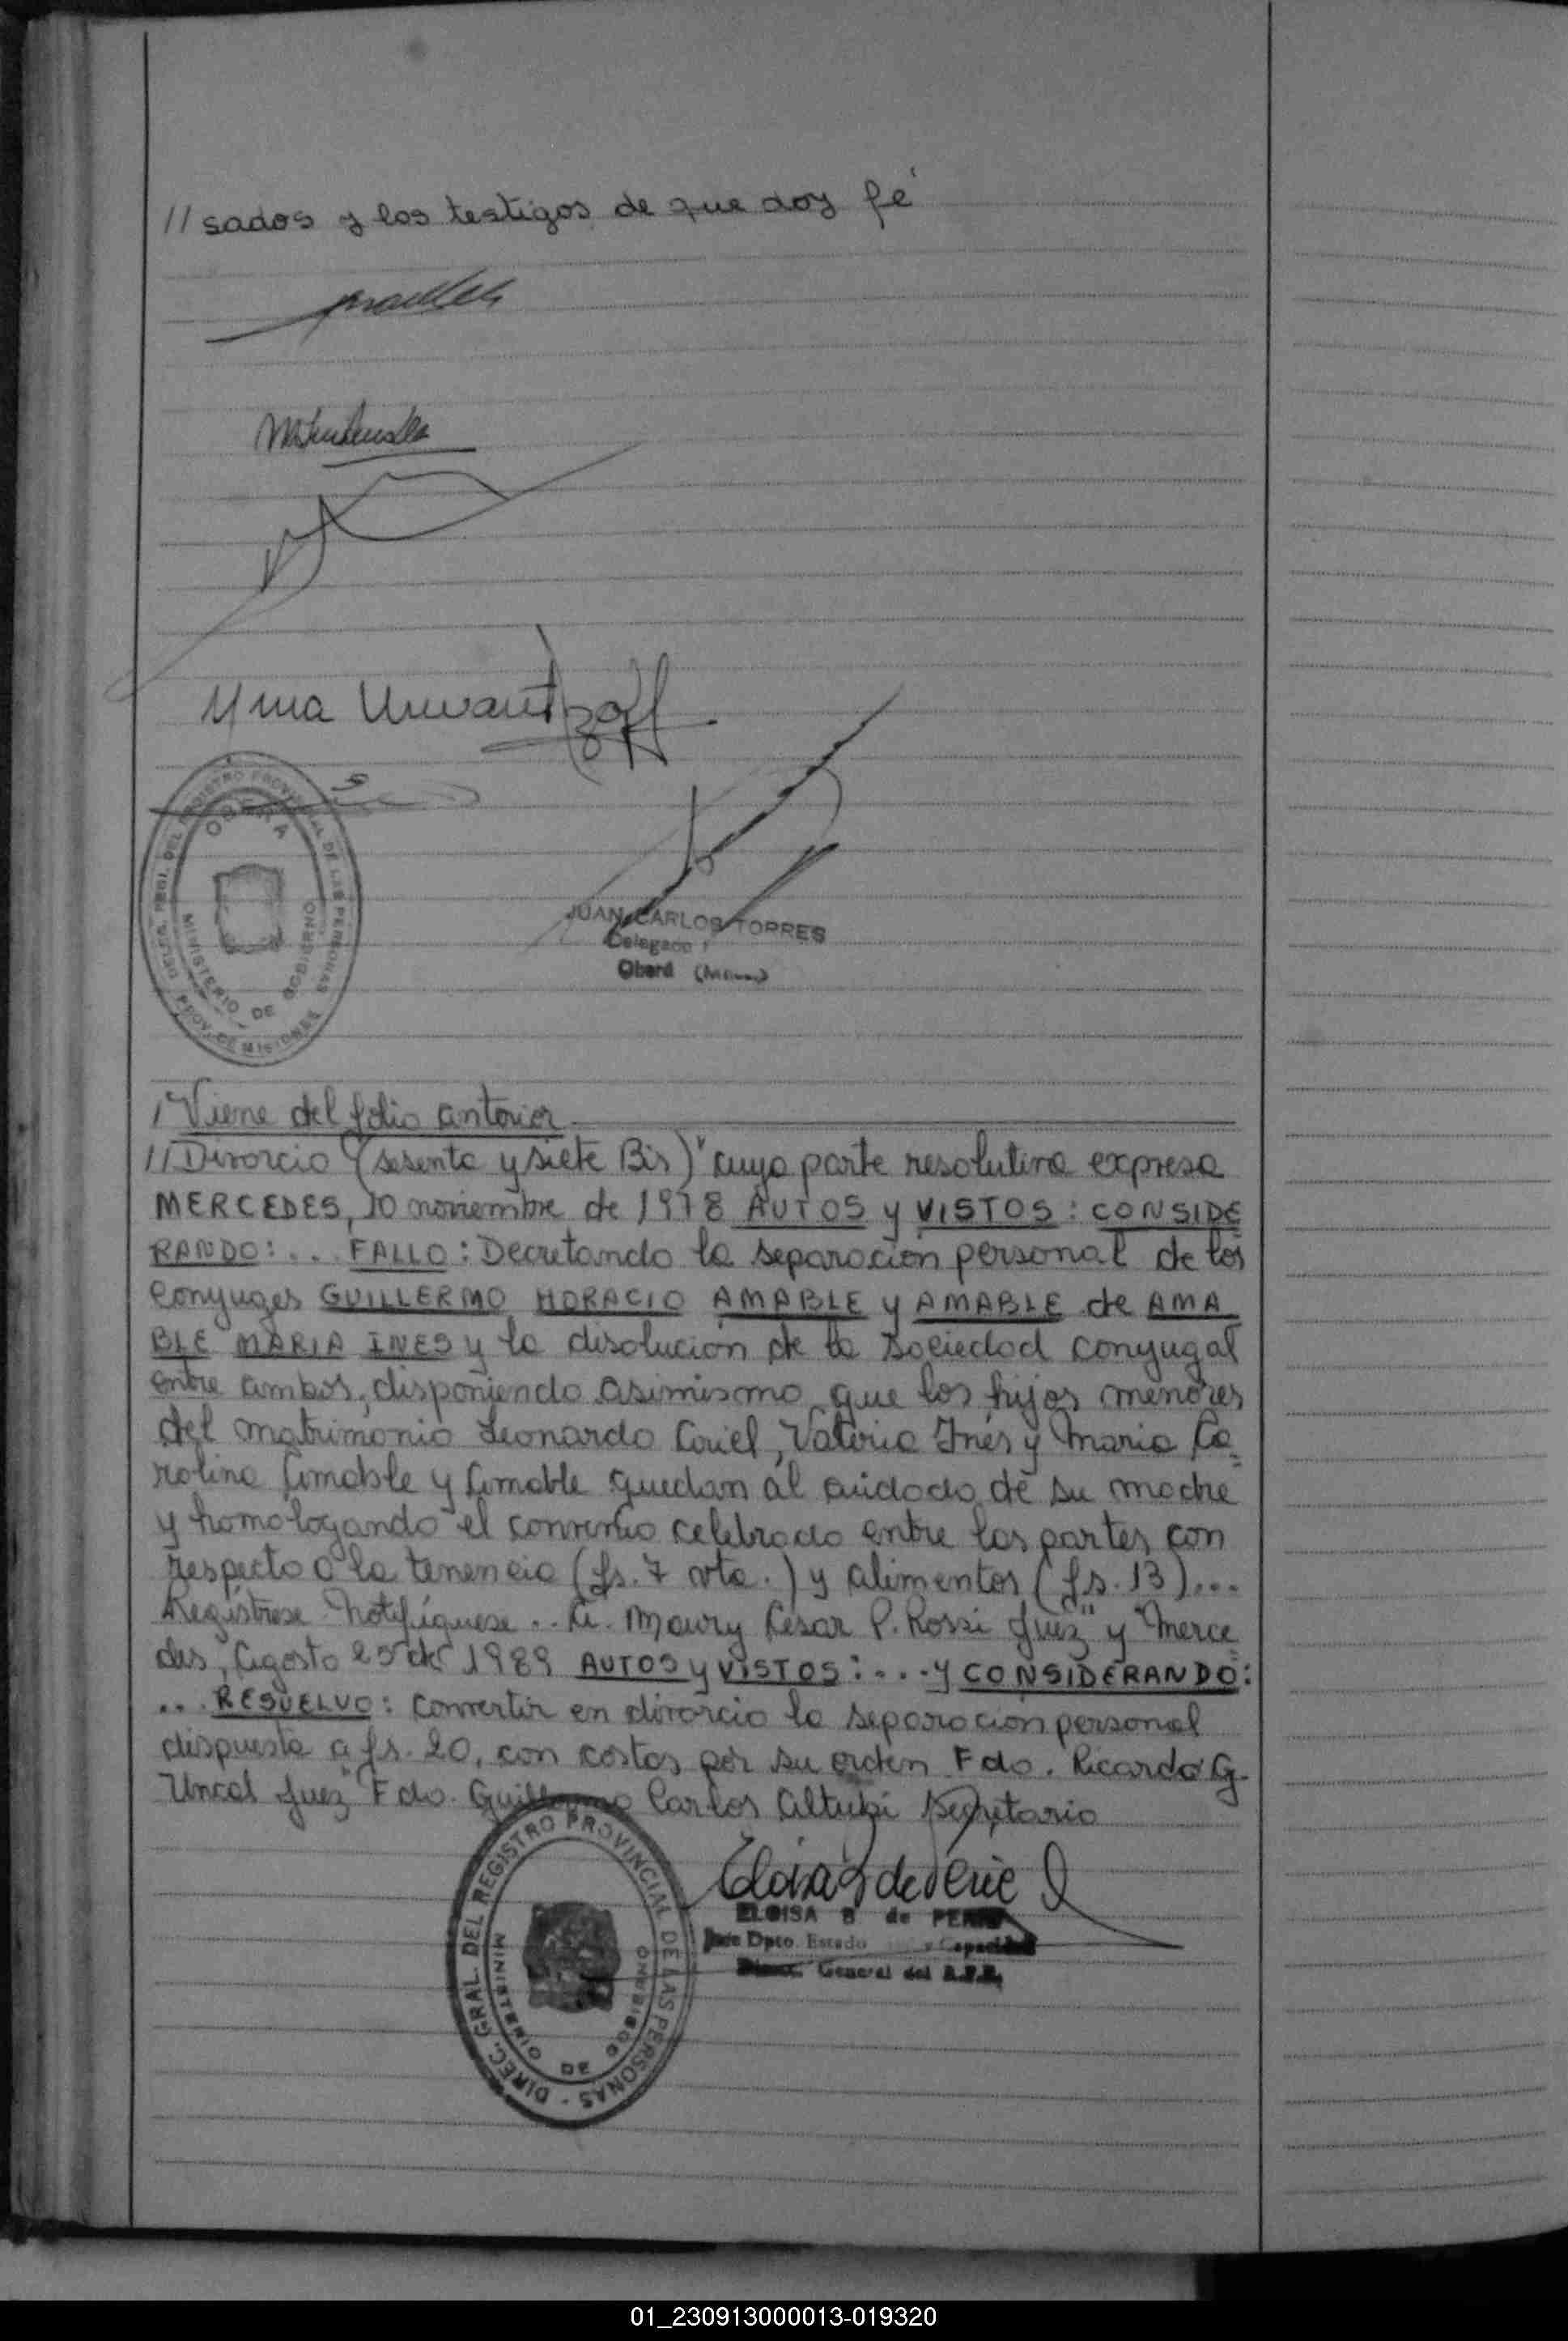 //sados y los testigos de que doy fé
Yma
DELEG. REGI. DEL REGISTRO PROVINCIAL DE LAS PERSONAS
OBERA
MINISTERIO DE GOBIERNO
PROV. DE MISIONES
JUAN CARLOS TORRES
Delegado
Oberá
/Viene del folio anterior
//Divorcio (sesenta y siete Bis)" cuya parte resolutiva expresa
MERCEDES, 10 noviembre de 1978 AUTOS y VISTOS: CONSIDE
RANDO:... FALLO: Decretando la separación personal de los
Conyuges GUILLERMO HORACIO AMABLE y AMABLE de AMA
BLE MARIA INES y la disolución de la sociedad conyugal
entre ambos, disponiendo asimismo que los hijos menores
del matrimonio Leonardo Ariel, Valeria Inés y Maria Ca
rolina Amable y Amable quedan al cuidado de su madre
y homologando el convenio celebrado entre las partes con
respecto a la tenencia (fs. 7 vta.) y alimentos (fs. 13)...
Regístrese Notifíquese .. Maury Cesar P. Rossi Juez" y "Merce
des, Agosto 25 de 1989 AUTOS y VISTOS:... y CONSIDERANDO:
... RESUELVO: Convertir en divorcio la separacion personal
dispuesta a fs. 20, con costas por su orden Fdo. Ricardo G.
Uncal Juez" Fdo. Guillermo Carlos Secretario
DIREC. GRAL. DEL REGISTRO PROVINCIAL DE LAS PERSONAS
MINISTERIO DE GOBIERNO
ELOISA B de
Jefe Dpto. Estado y Capacidad
General del R.P.P.
01_230913000013-019320